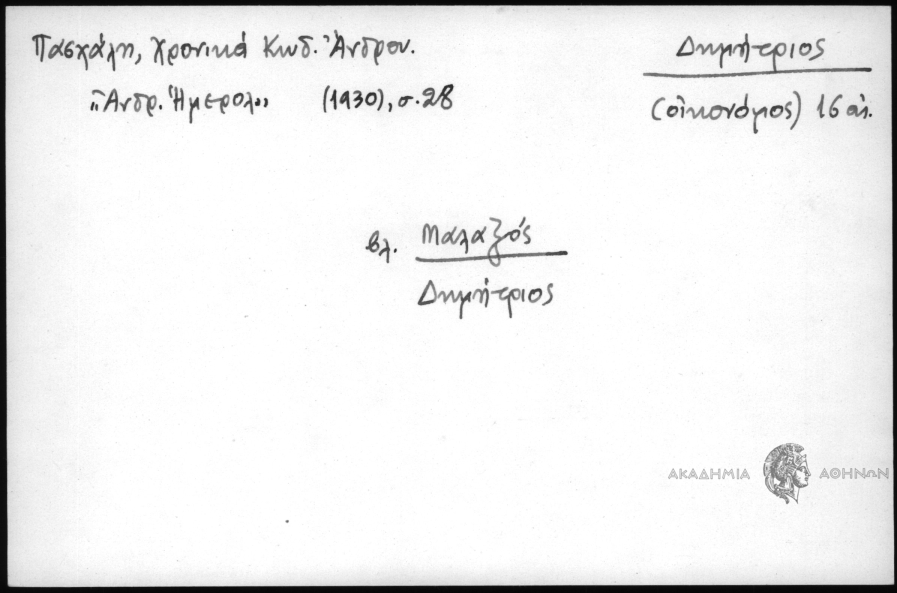 Πασχάλη, Χρονικά Κωδ. Ἄνδρου.
"Ἀνδρ. Ἡμερολ." (1930), σ. 28
Δημήτριος
(οἰκονόμος) 16 αἰ.
βλ. Μαλαξός
Δημήτριος
ΑΚΑΔΗΜΙΑ ΑΘΗΝΩΝ